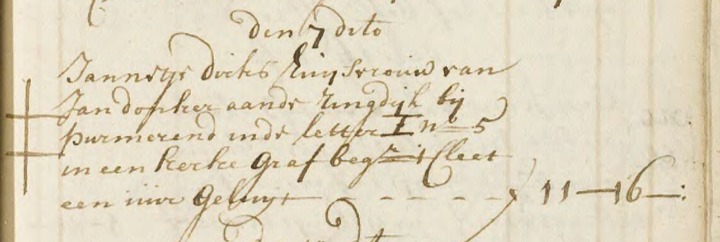 den 7 dito
Jannetje dirks huijsvrouw van
Jan donker aande ringdijk bij
purmerend inde letter I no 5
in een kerke graf begr: 't Cleet
een uur geluijt - - - - - - 11 — 16 —: